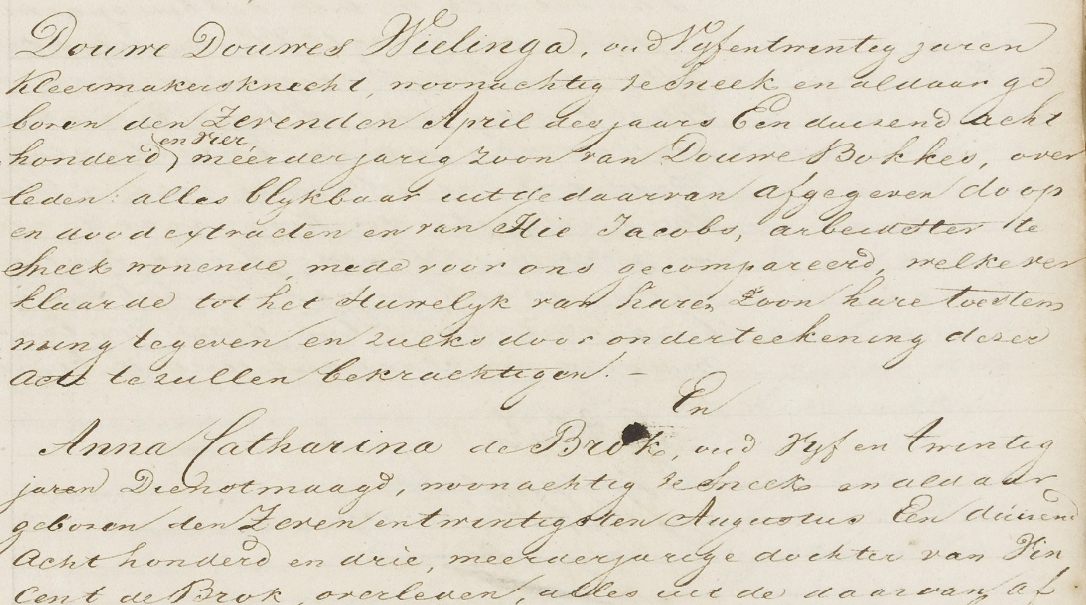 Douwe Douwes Wielinga, oud Vyfentwintig jaren
Kleermakersknecht, woonachtig te Sneek en aldaar ge
boren den Zevenden April des jaars Een duizend acht
en vier
honderd meerderjarig zoon van Douwe Bokkes, over
leden: alles blykbaar uit de daarvan afgegeven doop
en dood extracten en van Hie Jacobs, arbeidster te
Sneek wonende, mede voor ons gecompareerd, welke ver
klaarde tot het Huwelyk van haren Zoon hare toestem
ming te geven en zulks door onderteekening dezer
acte te zullen bekrachtigen. —
En
Anna Catharina de Brok, oud Vyf en twintig
jaren Dienstmaagd, woonachtig te Sneek en aldaar
geboren den Zeven entwintigsten Augustus Een duizend
acht honderd en drie, meerderjarige dochter van Vin
cent de Brok, overleden, alles uit de daarvan af